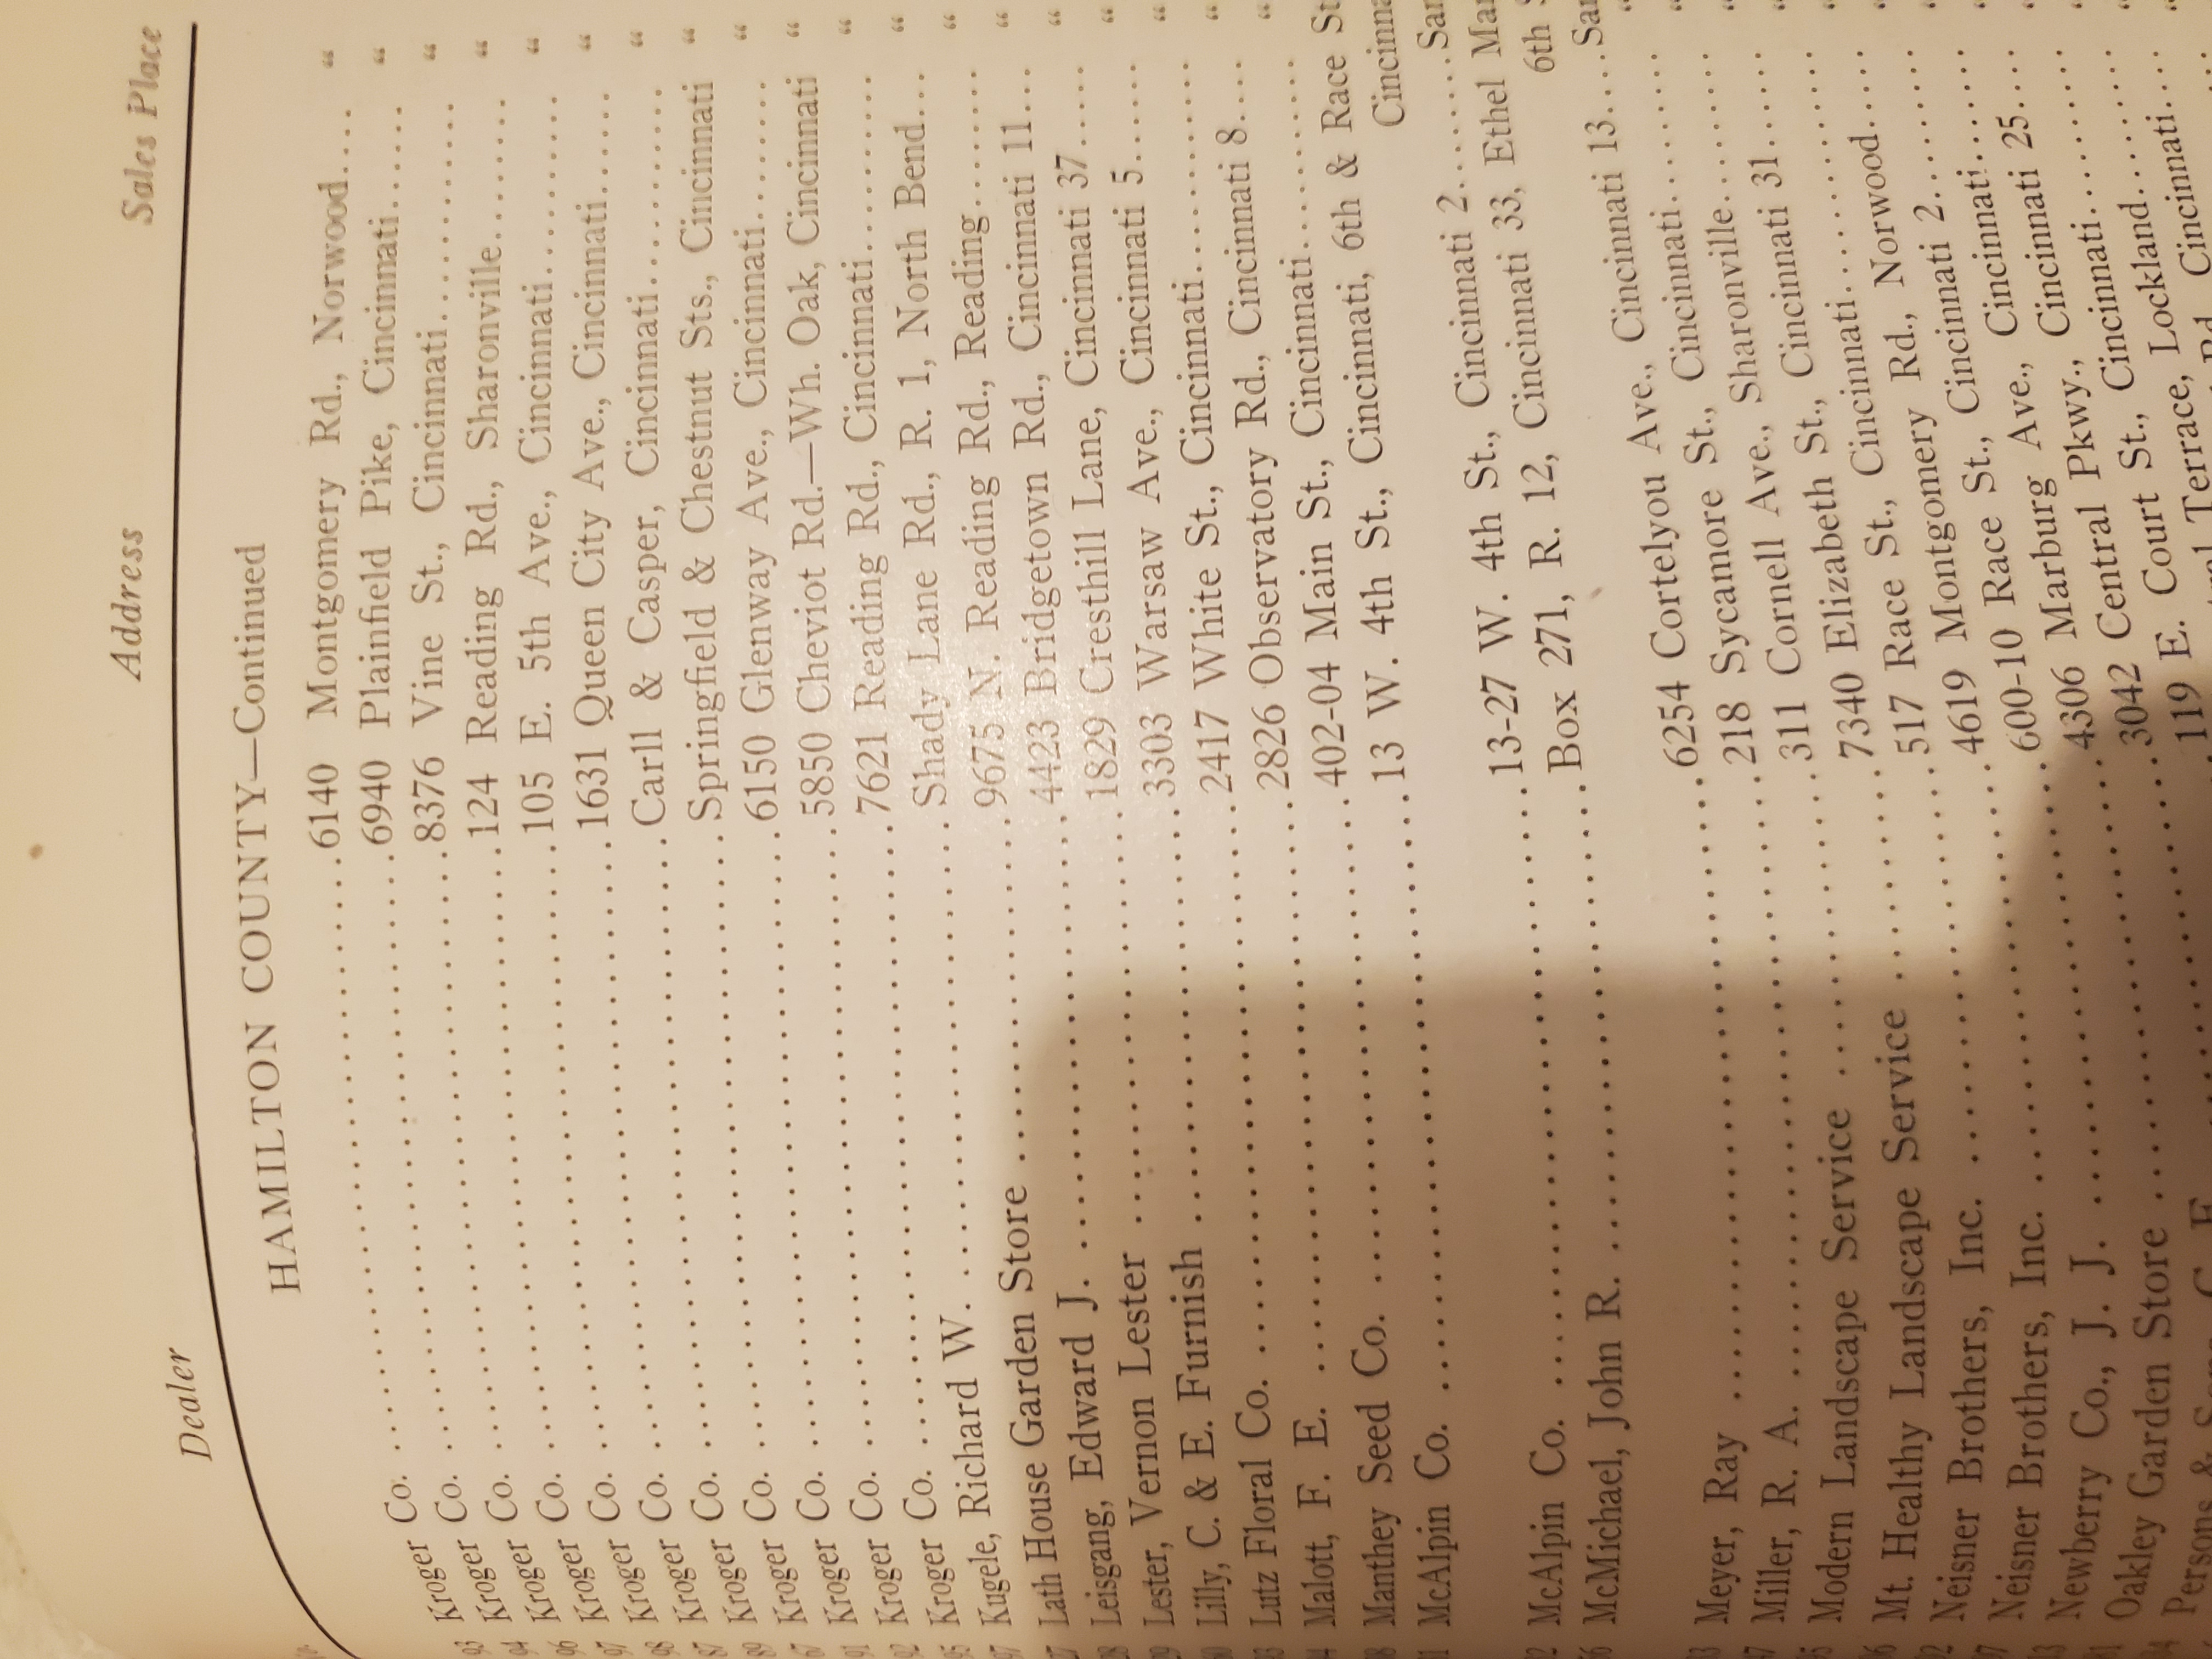 Dealer Address Sales Place
HAMILTON COUNTY—Continued
Kroger Co. ........ 6140 Montgomery Rd., Norwood.... "
Kroger Co. ........ 6940 Plainfield Pike, Cincinnati...... "
Kroger Co. ........ 8376 Vine St., Cincinnati........... "
Kroger Co. ........ 124 Reading Rd., Sharonville........ "
Kroger Co. ........ 105 E. 5th Ave., Cincinnati.......... "
Kroger Co. ........ 1631 Queen City Ave., Cincinnati...... "
Kroger Co. ........ Carll & Casper, Cincinnati........... "
Kroger Co. ........ Springfield & Chestnut Sts., Cincinnati "
Kroger Co. ........ 6150 Glenway Ave., Cincinnati........ "
Kroger Co. ........ 5850 Cheviot Rd.—Wh. Oak, Cincinnati "
Kroger Co. ........ 7621 Reading Rd., Cincinnati.......... "
Kugele, Richard W. ........ Shady Lane Rd., R. 1, North Bend... "
Lath House Garden Store ........ 9675 N. Reading Rd., Reading....... "
Leisgang, Edward J. ........ 4423 Bridgetown Rd., Cincinnati 11... "
Lester, Vernon Lester ........ 1829 Cresthill Lane, Cincinnati 37..... "
Lilly, C. & E. Furnish ........ 3303 Warsaw Ave., Cincinnati 5...... "
Lutz Floral Co. ........ 2417 White St., Cincinnati........... "
Malott, F. E. ........ 2826 Observatory Rd., Cincinnati 8.... "
Manthey Seed Co. ........ 402-04 Main St., Cincinnati.......... "
McAlpin Co. ........ 13 W. 4th St., Cincinnati, 6th & Race St
Cincinna
McAlpin Co. ........ 13-27 W. 4th St., Cincinnati 2....... Sar
McMichael, John R. ........ Box 271, R. 12, Cincinnati 33, Ethel Mar
6th S
Meyer, Ray ........ 6254 Cortelyou Ave., Cincinnati 13.... Sar
Miller, R. A. ........ 218 Sycamore St., Cincinnati......... "
Modern Landscape Service ........ 311 Cornell Ave., Sharonville........ "
Mt. Healthy Landscape Service ........ 7340 Elizabeth St., Cincinnati 31..... "
Neisner Brothers, Inc. ........ 517 Race St., Cincinnati........... "
Neisner Brothers, Inc. ........ 4619 Montgomery Rd., Norwood..... "
Newberry Co., J. J. ........ 600-10 Race St., Cincinnati 2........ "
Oakley Garden Store ........ 4306 Marburg Ave., Cincinnati....... "
Persons & ........ 3042 Central Pkwy., Cincinnati 25.... "
119 E. Court St., Cincinnati......... "
Terrace, Lockland....... "
Rd., Cincinnati.... "